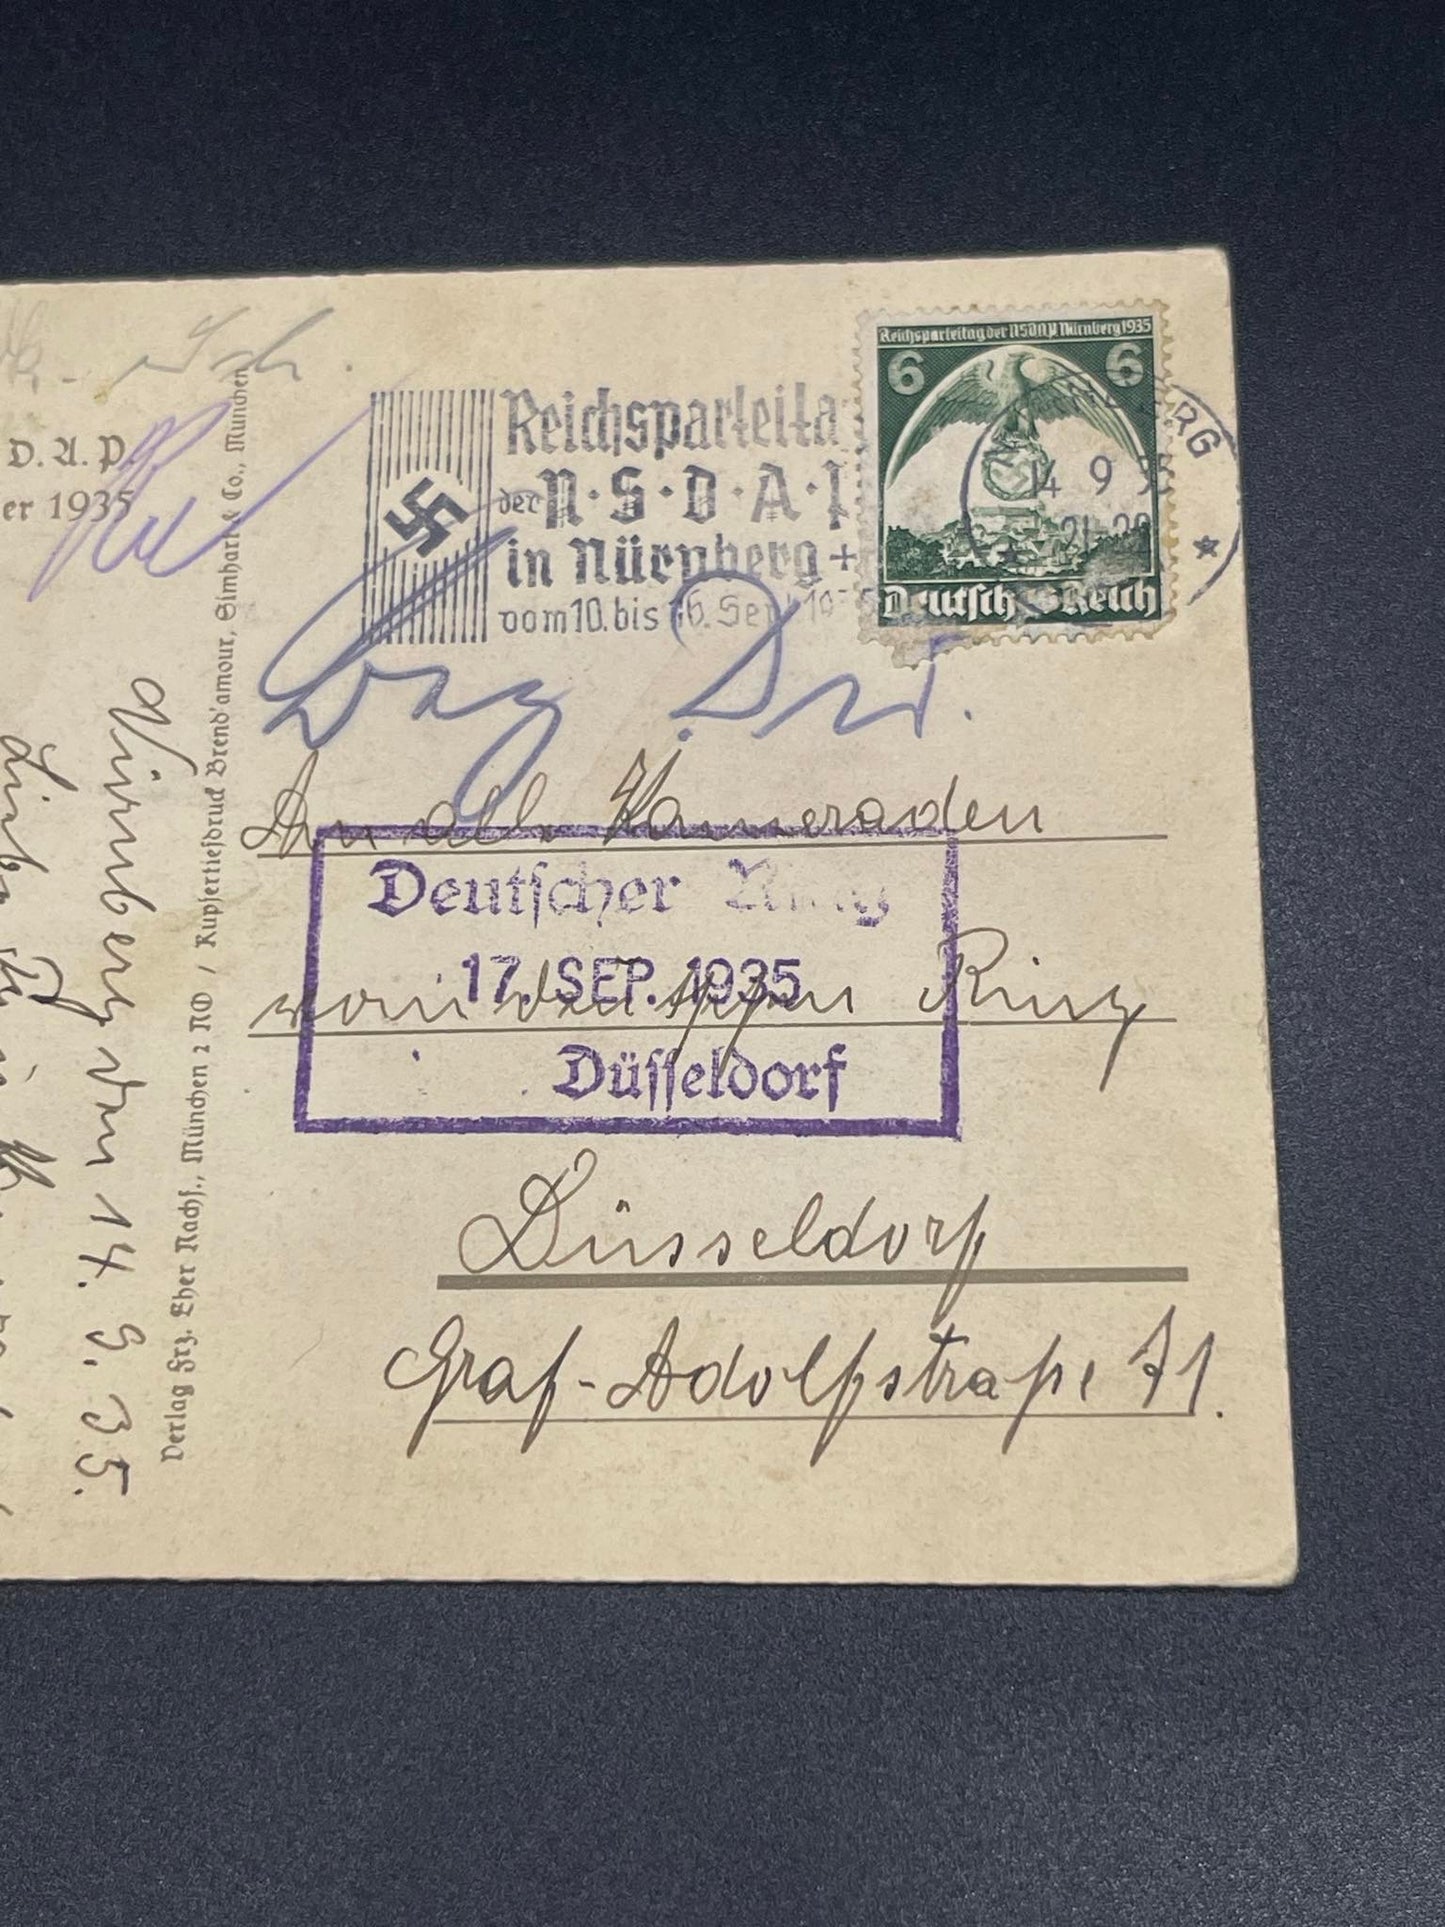 D. A. P.
er 1935
Reichsparteita
der N·S·D·A·P
in Nürnberg +
vom 10. bis 16. Sept. 1935
Reichsparteitag der NSDAP Nürnberg 1935
6 6
Deutsches Reich
14 9 3
21-22
Nürnberg, den 14. 9. 35.
Verlag Frz. Eher Nachf., München 2 NO / Kupfertiefdruck Brend'amour, Simhart & Co., München
An alle Kameraden
Deutscher Ring
17. SEP. 1935
vom deutschen Ring
Düsseldorf
Düsseldorf
Graf-Adolfstraße 71.